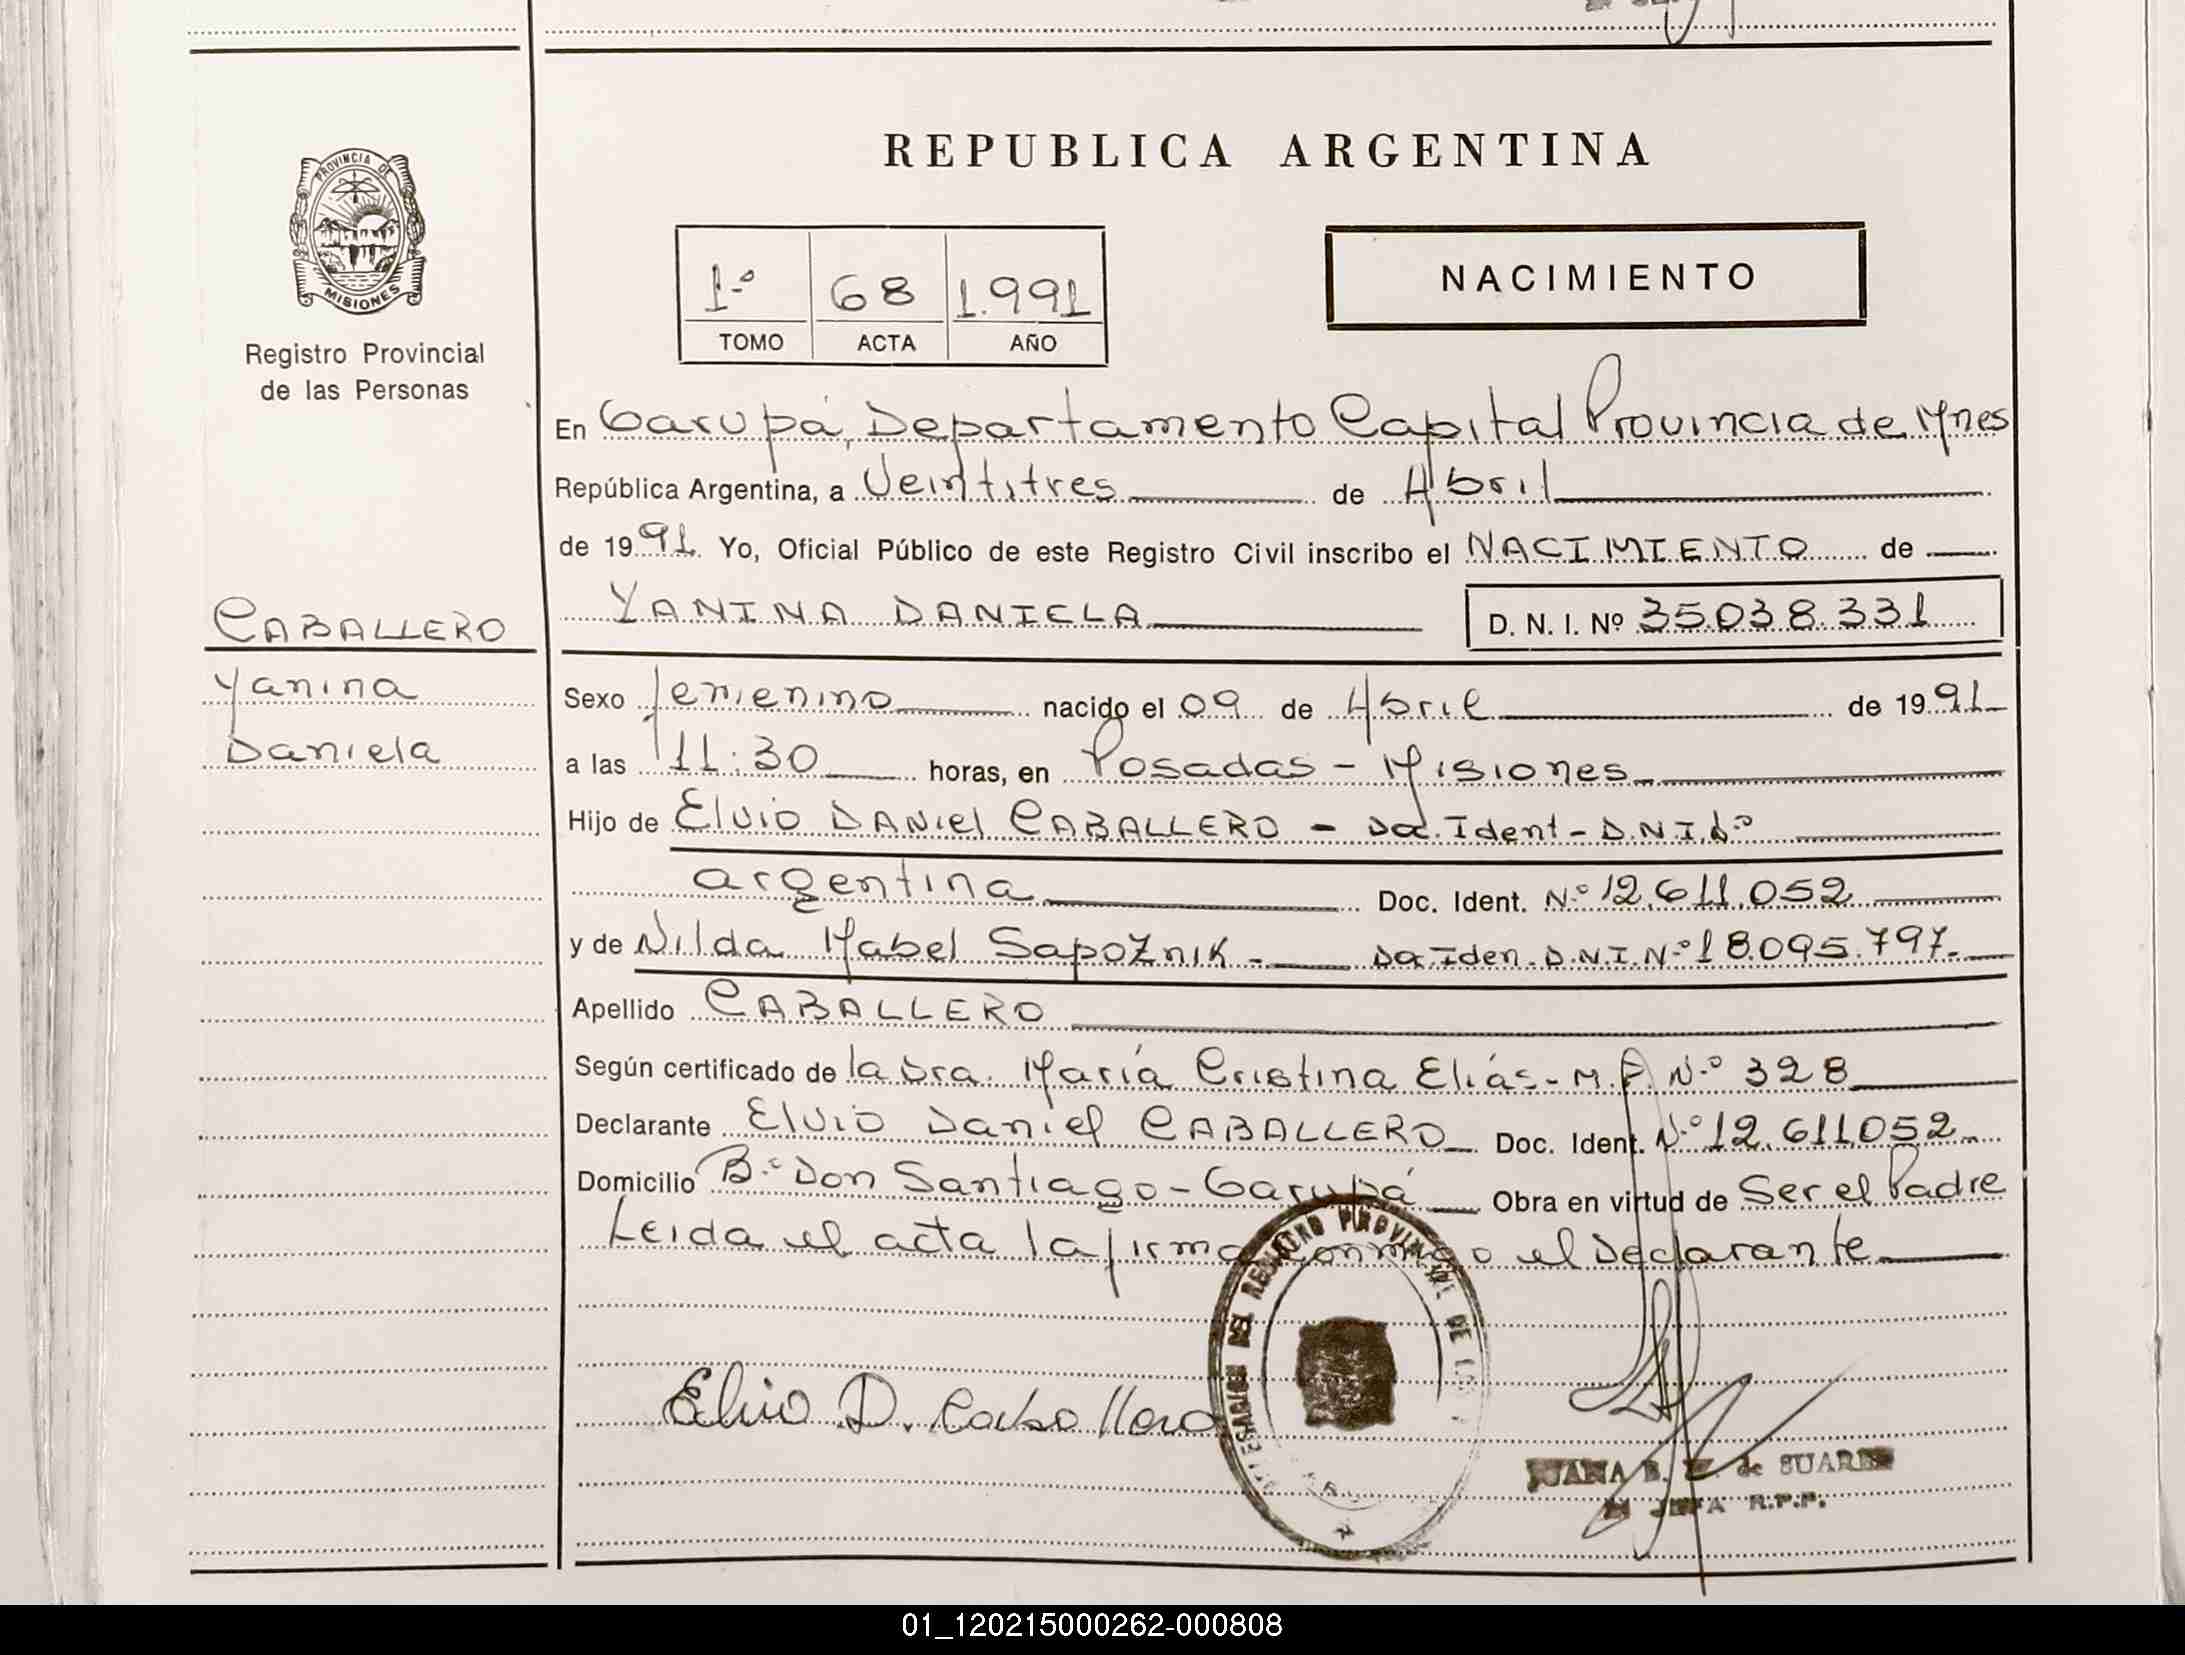 REPUBLICA ARGENTINA
PROVINCIA DE
MISIONES
Registro Provincial
de las Personas
1º 68 1.991
TOMO ACTA AÑO
NACIMIENTO
En Garupá, Departamento Capital Provincia de Mnes
República Argentina, a Veintitres de Abril
de 1991 Yo, Oficial Público de este Registro Civil inscribo el NACIMIENTO de
CABALLERO
Yanina
Daniela
YANINA DANIELA D. N. I. Nº 35.038.331
Sexo femenino nacido el 09 de Abril de 1991
a las 11:30 horas, en Posadas - Misiones
Hijo de Elvio DANIEL CABALLERO - Doc. Ident - D.N.I.
argentina Doc. Ident. Nº 12.611.052
y de Nilda Mabel Sapoznik - Doc Iden. D.N.I. Nº 18.095.797.
Apellido CABALLERO
Según certificado de la Dra. María Cristina Elías - M.P. Nº 328
Declarante Elvio Daniel CABALLERO Doc. Ident. Nº 12.611.052
Domicilio Bº Don Santiago - Garupá Obra en virtud de Ser el Padre
Leida el acta la firma conmigo el Declarante
DEL REGISTRO PROVINCIAL DE
Elvio D. Caballero
JUANA B. de SUAREZ
JEFA R.P.P.
01_120215000262-000808